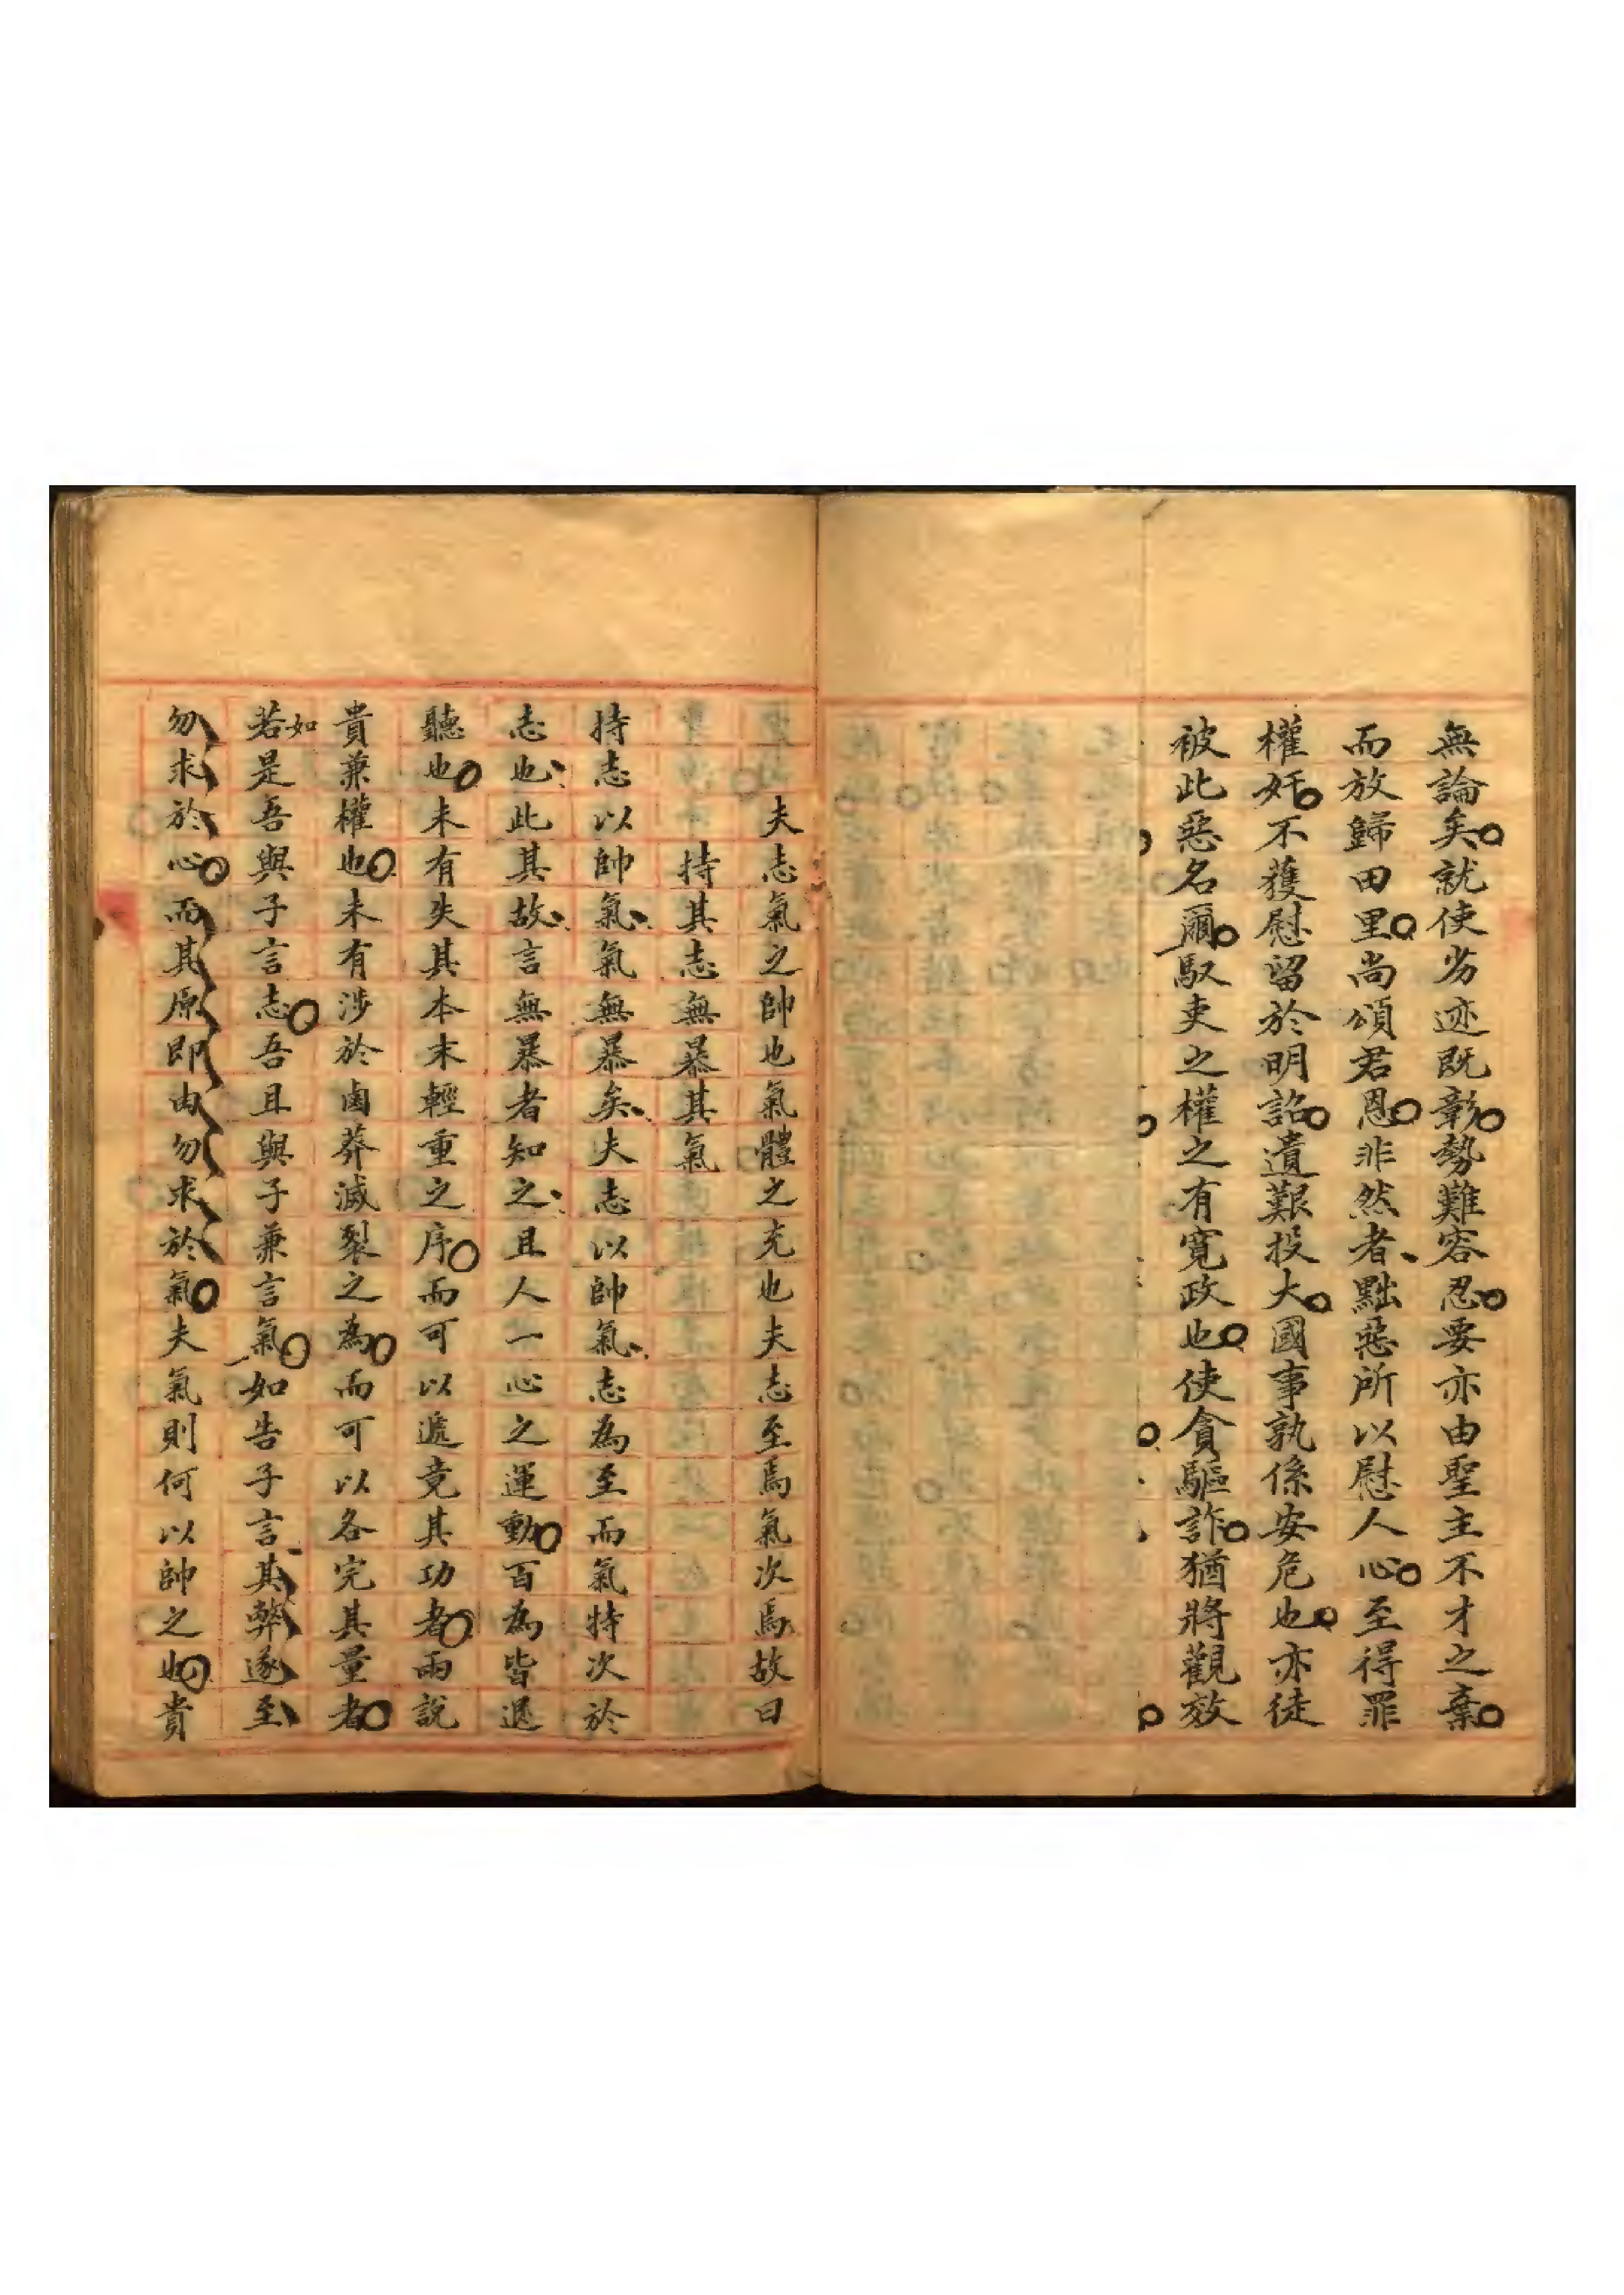 無論矣就使劣迹既彰勢難容忍要亦由聖主不才之棄
而放歸田里尚頌君恩非然者黜惡所以慰人心至得罪
權奸不獲慰留於明詔遺艱投大國事孰係安危也亦徒
被此惡名爾馭吏之權之有寬政也使貪驅詐猶將觀效
夫志氣之帥也氣體之充也夫志至焉氣次焉故曰
持其志無暴其氣
持志以帥氣氣無暴矣夫志以帥氣志為至而氣特次於
志也此其故言無暴者知之且人一心之運動百為皆退
聽也未有失其本末輕重之序而可以遞竟其功者兩說
貴兼權也未有涉於鹵莽滅裂之為而可以各完其量者
若如是吾與子言志吾且與子兼言氣如告子言其弊遂至
勿求於心而其原即由勿求於氣夫氣則何以帥之也貴